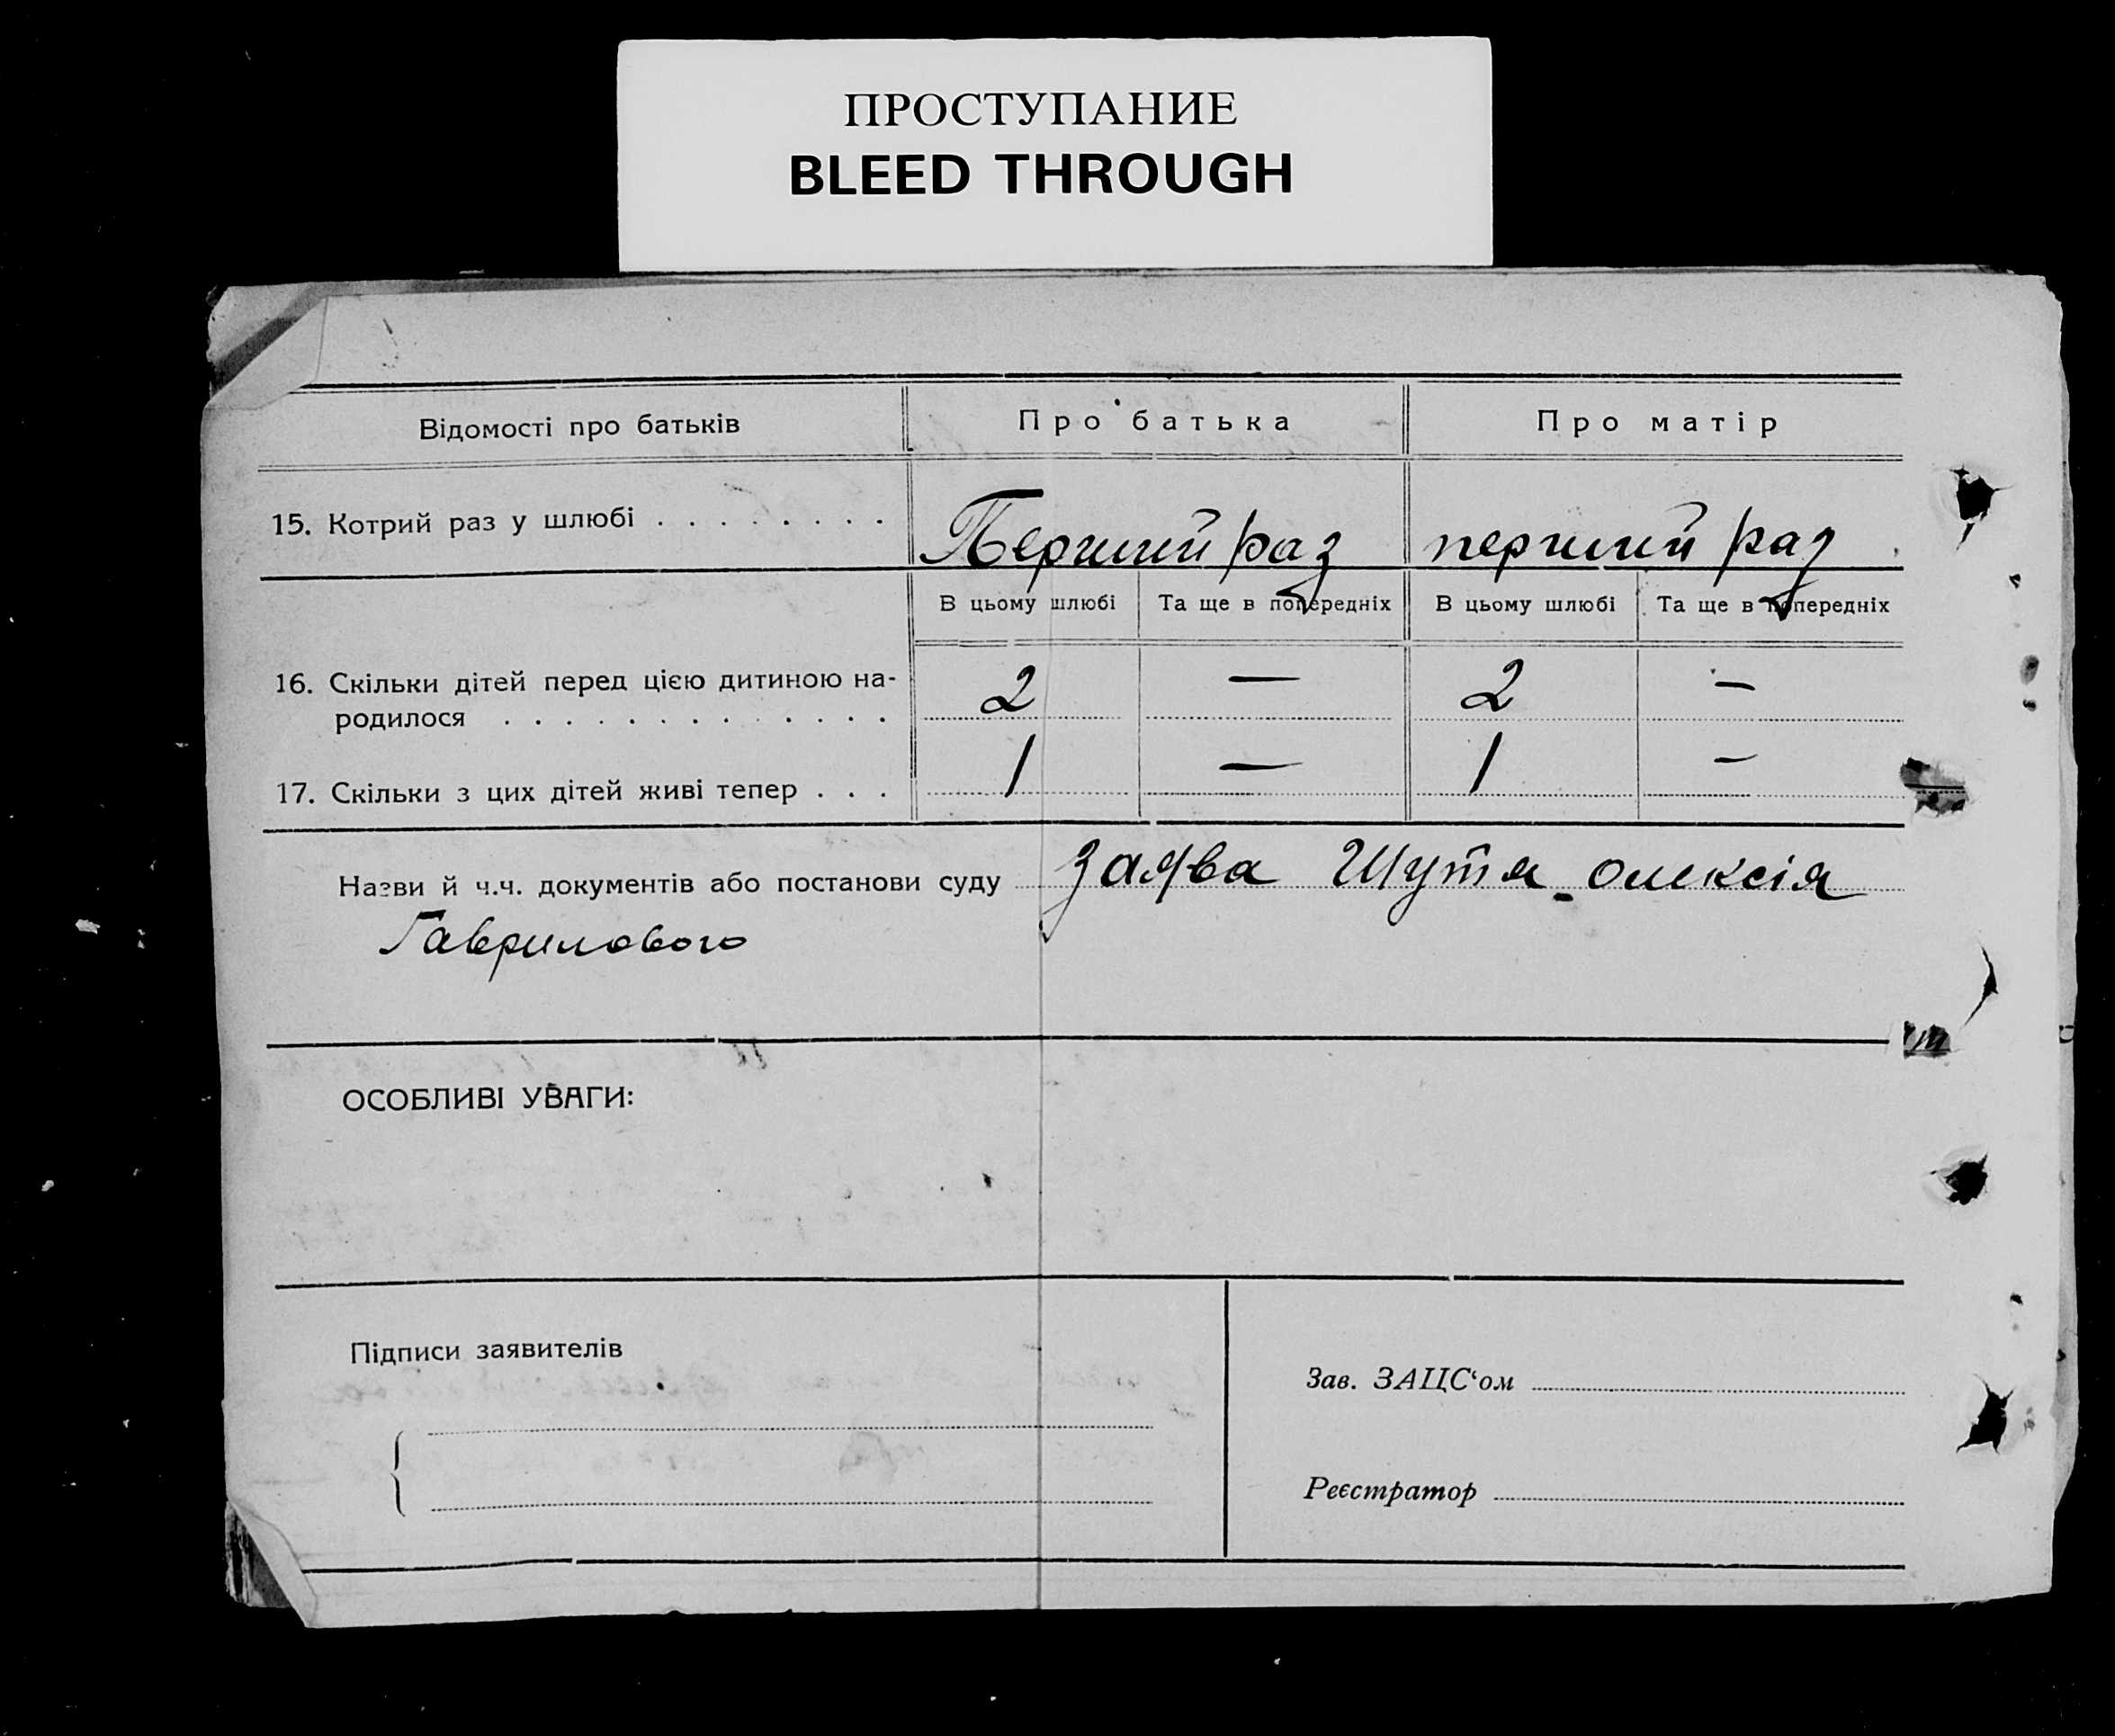 ПРОСТУПАНИЕ
BLEED THROUGH
Відомості про батьків Про батька Про матір
15. Котрий раз у шлюбі . . . . . . . . Перший раз перший раз
В цьому шлюбі Та ще в попередніх В цьому шлюбі Та ще в попередніх
16. Скільки дітей перед цією дитиною на-
родилося . . . . . . . . . . . . . 2 — 2 —
17. Скільки з цих дітей живі тепер . . . 1 — 1 —
Назви й ч.ч. документів або постанови суду заява Шутя олексія
Гаврилового
ОСОБЛИВІ УВАГИ:
Підписи заявителів
Зав. ЗАЦС‘ом
Реєстратор